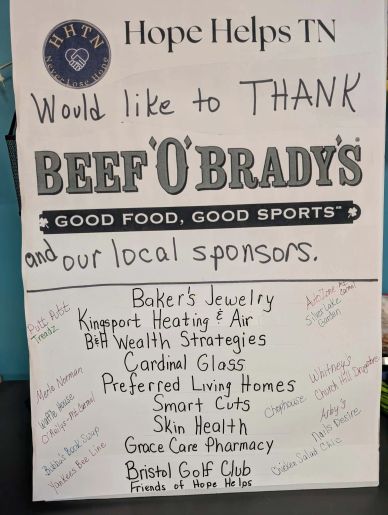 HHTN
Never Lose Hope
Hope Helps TN
Would like to THANK
BEEF 'O' BRADY'S
GOOD FOOD, GOOD SPORTS
and our local sponsors.
Baker's Jewelry
Kingsport Heating & Air
B&H Wealth Strategies
Cardinal Glass
Preferred Living Homes
Smart Cuts
Skin Health
Grace Care Pharmacy
Bristol Golf Club
Friends of Hope Helps
Putt Putt
Treadz
Merle Norman
Waffle House
O'Reilys-Mt. Carmel
Bubba's Book Swap
Yankees Bee Line
AutoZone Mt. Carmel
Silver Lake
Garden
Whitney's
Church Hill Drugstore
Chophouse
Arby's
Nails Desire
Chicken Salad Chic